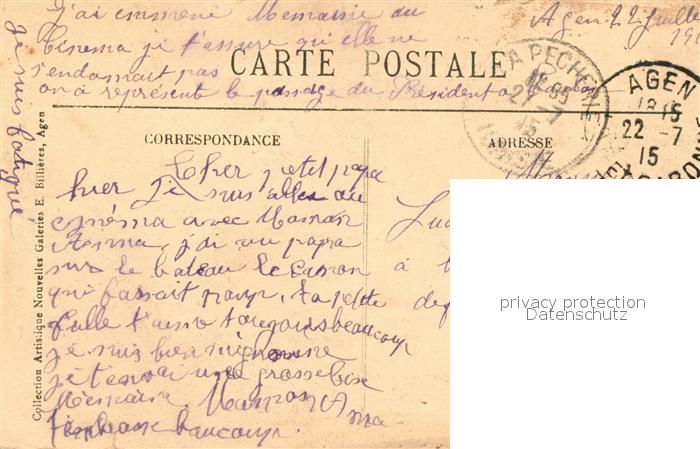 j'ai emmené Memaine au
cinema je t'assure qu'elle ne
s'endormait pas
on a représenté le passage du Président a
Agen 22 Juillet
191
je suis fatigué
CARTE POSTALE
LA PECHERIE
27 -7
15
AGEN
18 15
22 -7
15
GARONNE
CORRESPONDANCE
ADRESSE
Cher petit papa
hier je suis allée au
cinéma avec Maman
j'ai vu papa
sur le bateau le canon
qui faisait poum, ta petite
fille t'aime toujours beaucoup
je suis bien mignonne
je t'envoi une grosse bise
Memaine. Maman
t'embrasse baucoup.
à
Collection Artistique Nouvelles Galeries E. Billières, Agen
privacy protection
Datenschutz